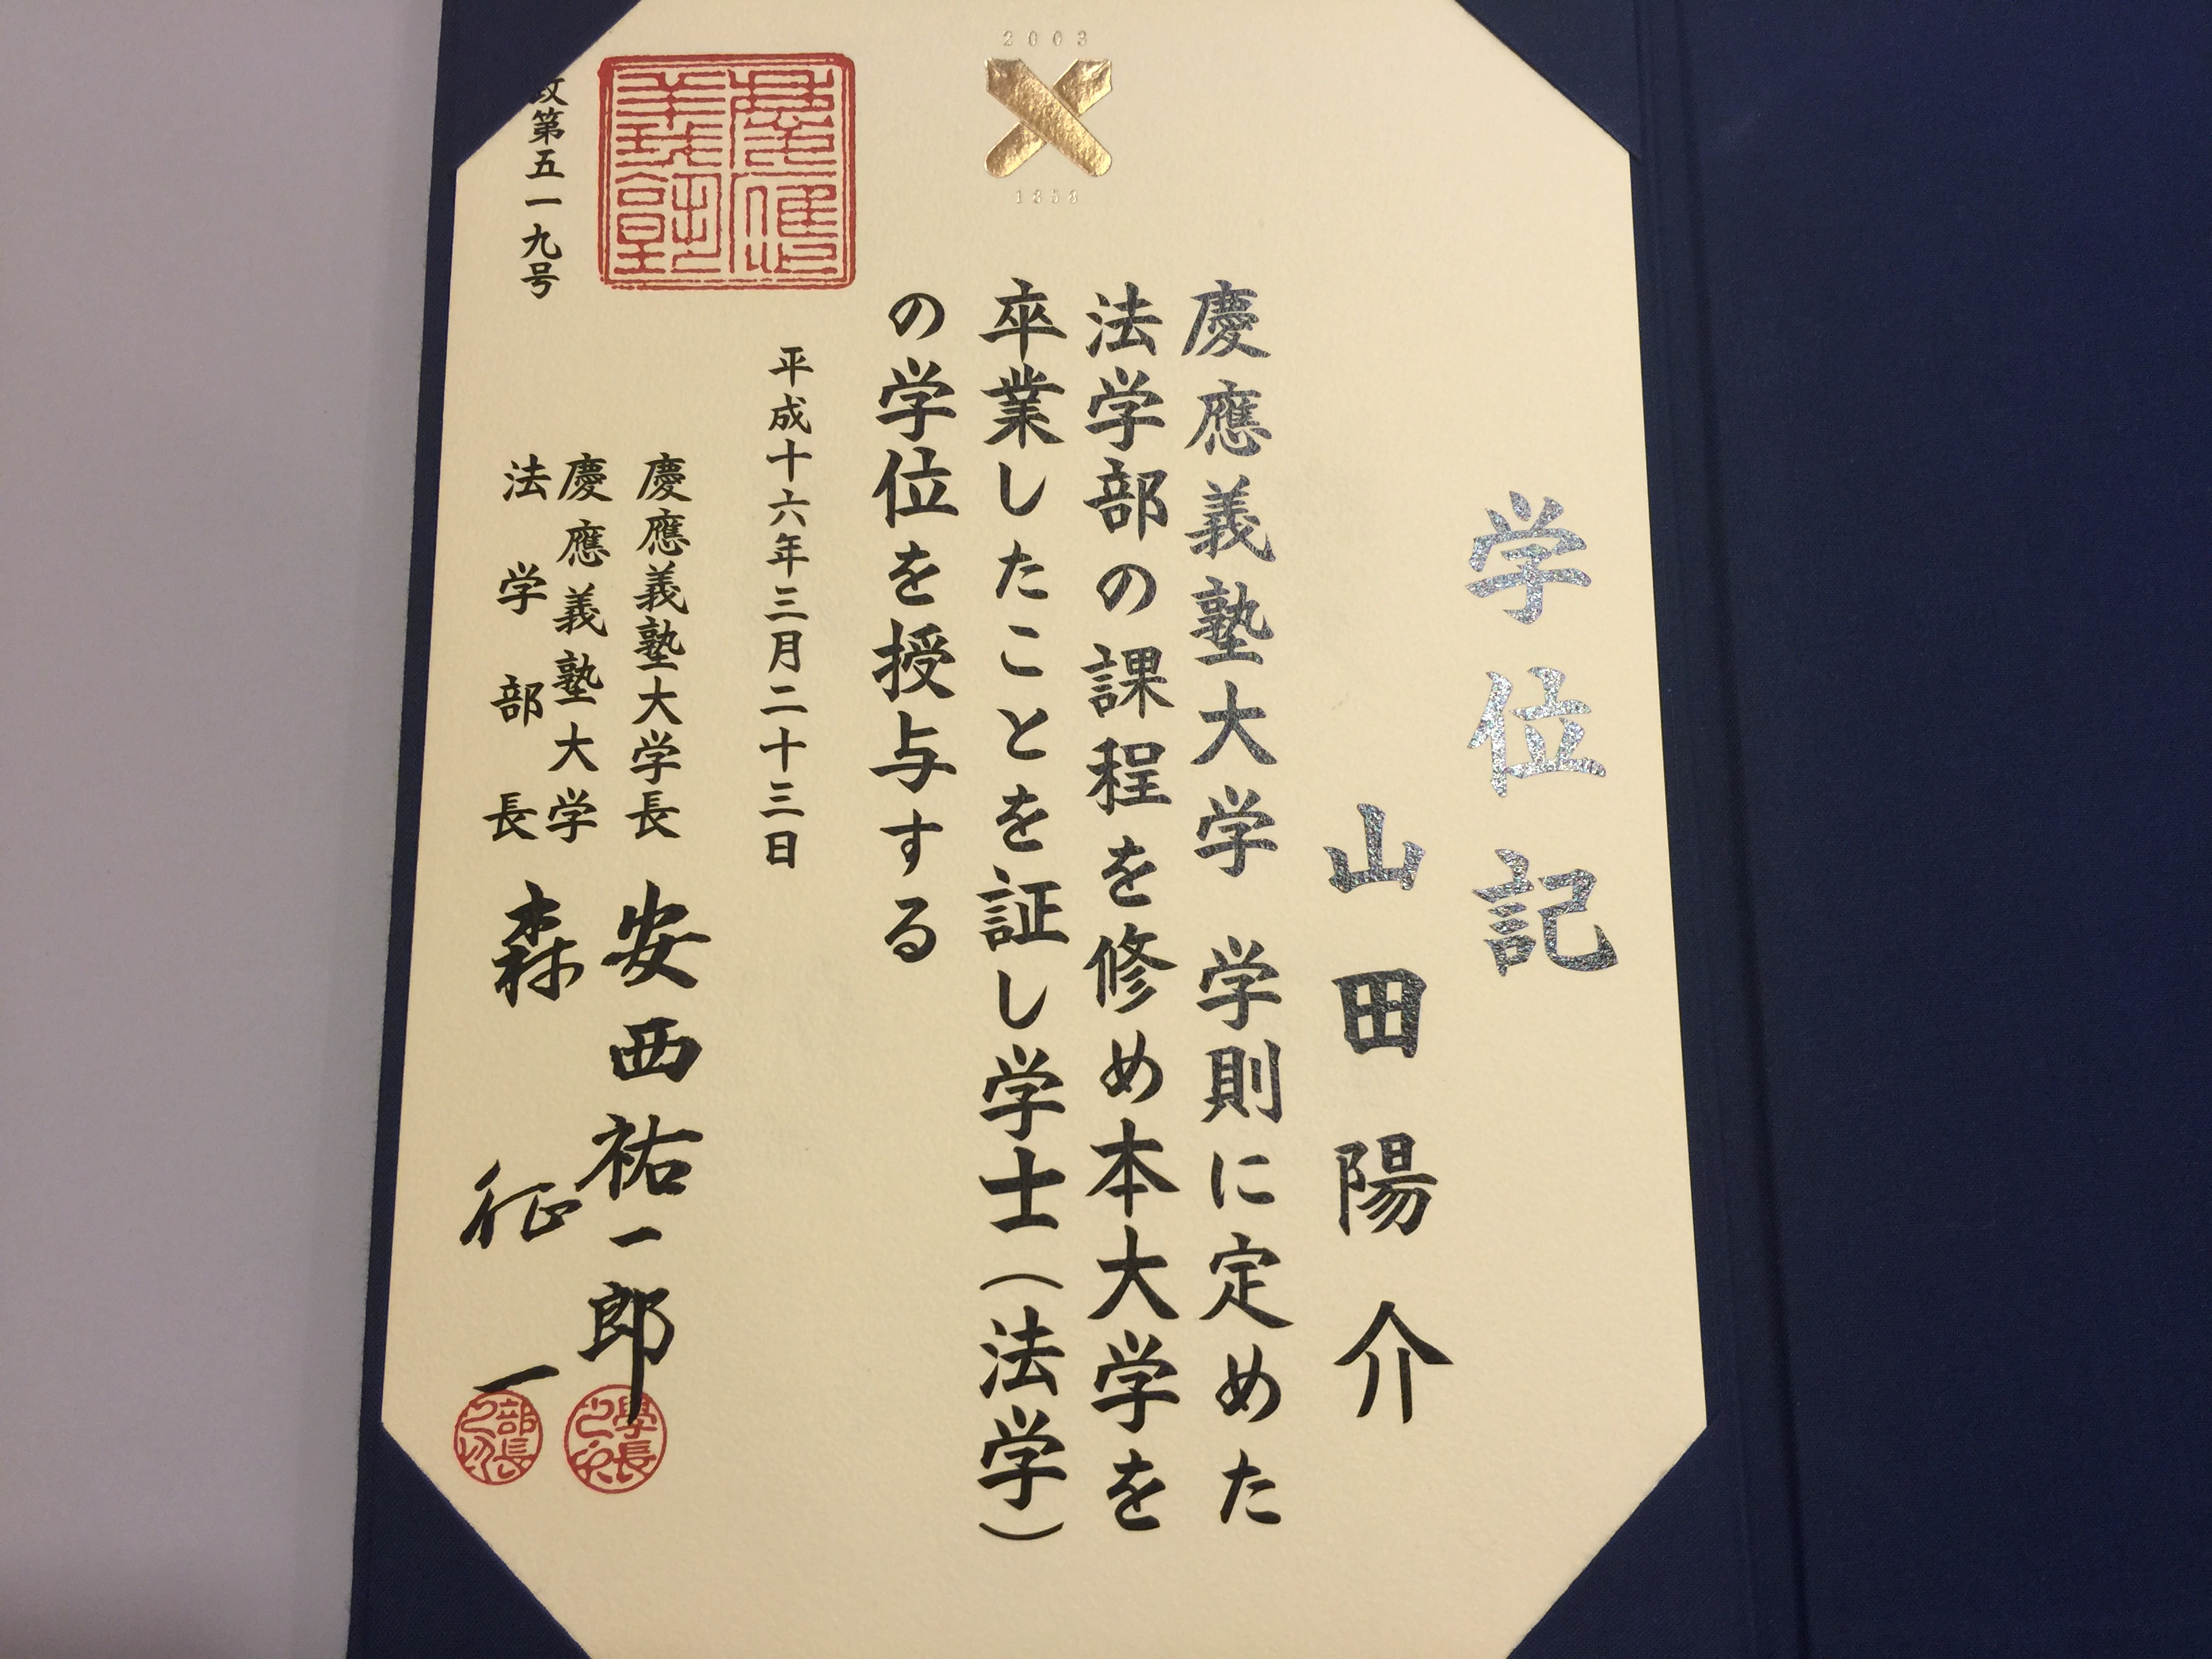 学位記
山田陽介
慶應義塾大学 学則に定めた
法学部の課程を修め本大学を
卒業したことを証し学士(法学)
の学位を授与する
平成十六年三月二十三日
慶應義塾大学長 安西祐一郎
慶應義塾大学
法学部長 森征一
政第五一九号
慶應義塾
2003
1858
學長
部長